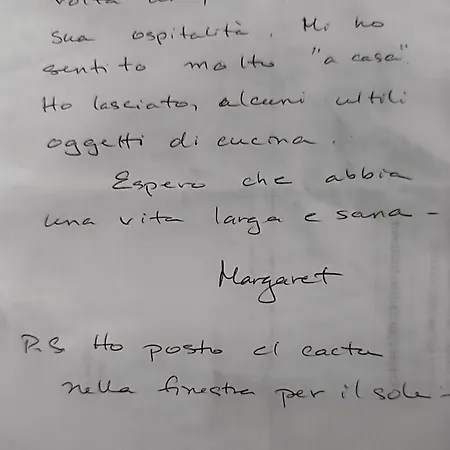 sua ospitalità. Mi ho
sentito molto "a casa"
Ho lasciato, alcuni ultili
oggetti di cucina.
Espero che abbia
una vita larga e sana -
Margaret
P.S Ho posto el cacta
nella finestra per il sole -